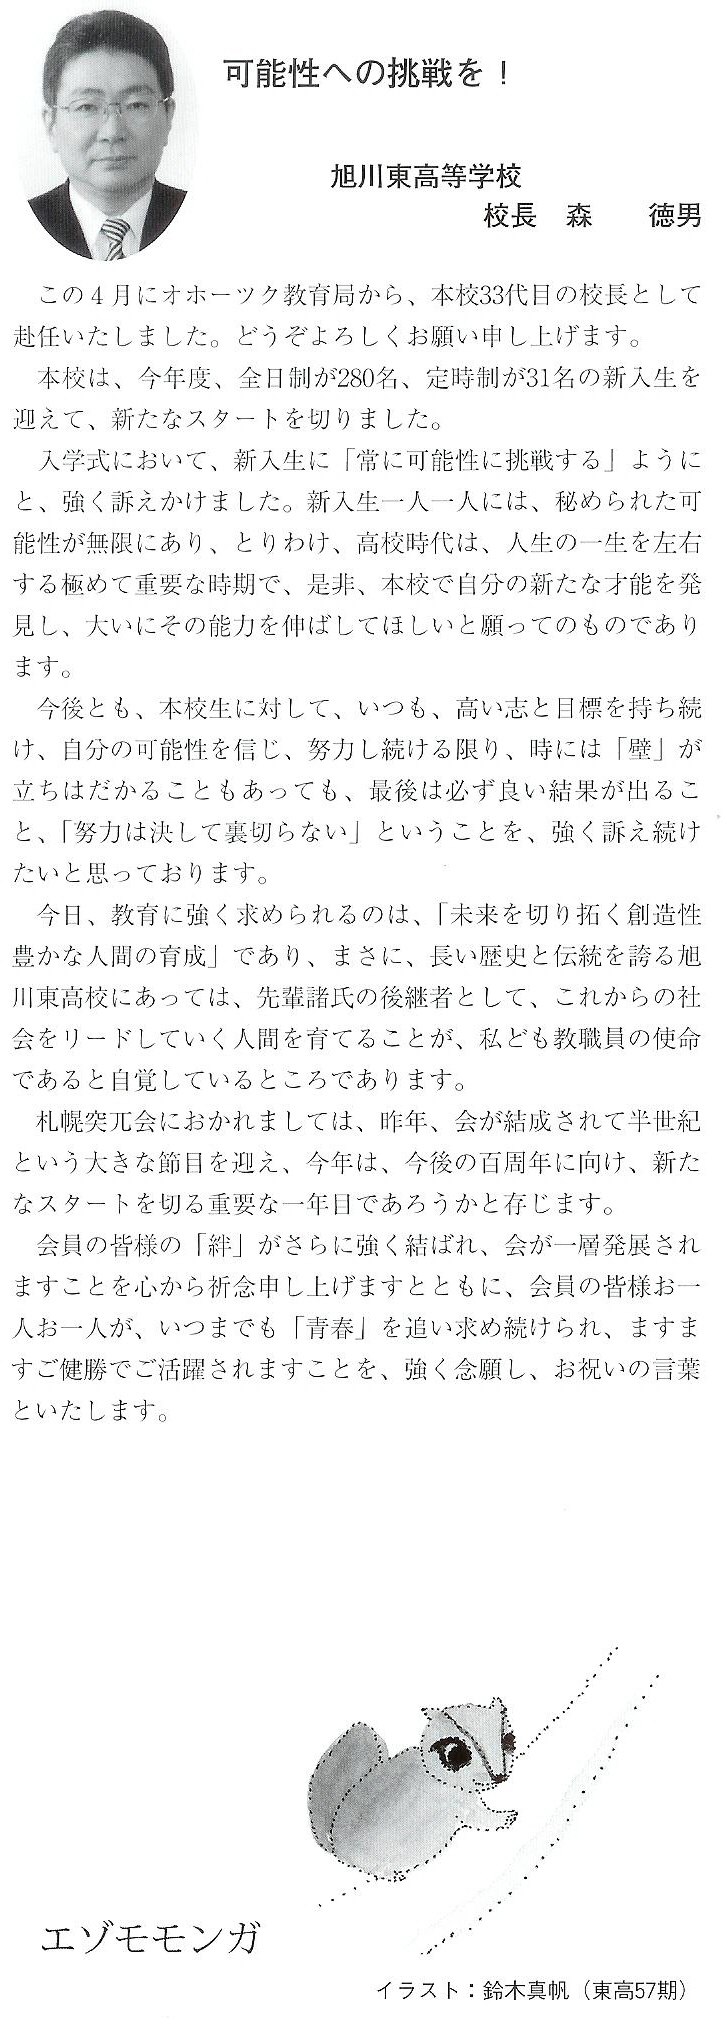 可能性への挑戦を！
旭川東高等学校
校長　森　　徳男
　この４月にオホーツク教育局から、本校33代目の校長として
赴任いたしました。どうぞよろしくお願い申し上げます。
　本校は、今年度、全日制が280名、定時制が31名の新入生を
迎えて、新たなスタートを切りました。
　入学式において、新入生に「常に可能性に挑戦する」ように
と、強く訴えかけました。新入生一人一人には、秘められた可
能性が無限にあり、とりわけ、高校時代は、人生の一生を左右
する極めて重要な時期で、是非、本校で自分の新たな才能を発
見し、大いにその能力を伸ばしてほしいと願ってのものであり
ます。
　今後とも、本校生に対して、いつも、高い志と目標を持ち続
け、自分の可能性を信じ、努力し続ける限り、時には「壁」が
立ちはだかることもあっても、最後は必ず良い結果が出るこ
と、「努力は決して裏切らない」ということを、強く訴え続け
たいと思っております。
　今日、教育に強く求められるのは、「未来を切り拓く創造性
豊かな人間の育成」であり、まさに、長い歴史と伝統を誇る旭
川東高校にあっては、先輩諸氏の後継者として、これからの社
会をリードしていく人間を育てることが、私ども教職員の使命
であると自覚しているところであります。
　札幌突兀会におかれましては、昨年、会が結成されて半世紀
という大きな節目を迎え、今年は、今後の百周年に向け、新た
なスタートを切る重要な一年目であろうかと存じます。
　会員の皆様の「絆」がさらに強く結ばれ、会が一層発展され
ますことを心から祈念申し上げますとともに、会員の皆様お一
人お一人が、いつまでも「青春」を追い求め続けられ、ますま
すご健勝でご活躍されますことを、強く念願し、お祝いの言葉
といたします。
エゾモモンガ
イラスト：鈴木真帆（東高57期）